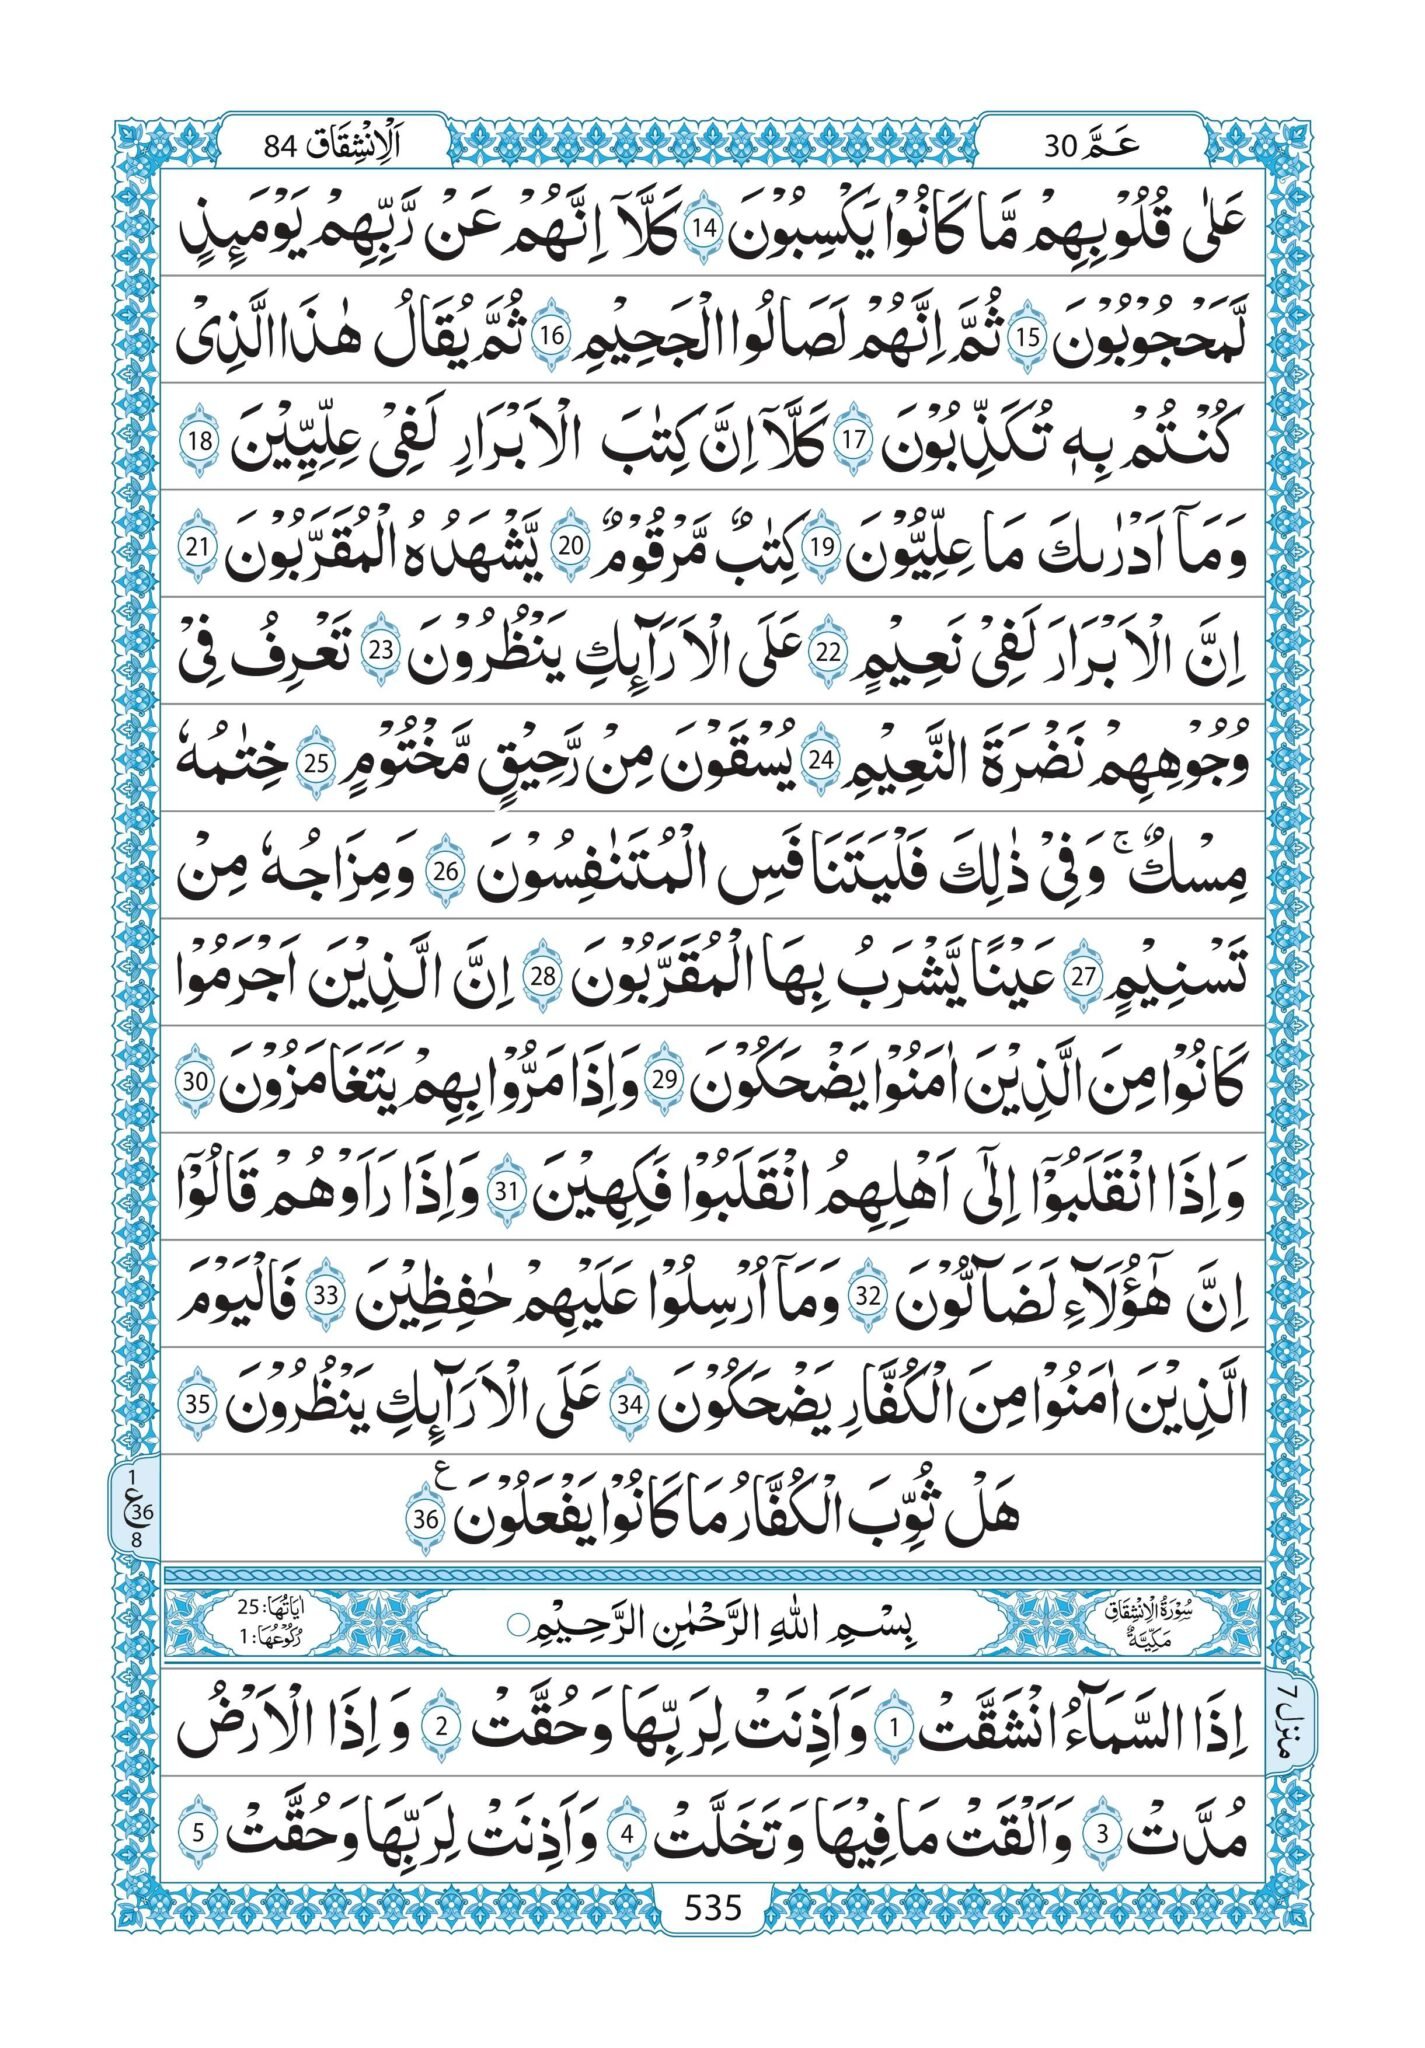 عَمَّ 30
اَلْاِنْشِقَاق 84
عَلٰى قُلُوْبِهِمْ مَّا كَانُوْا يَكْسِبُوْنَ 14 كَلَّاۤ اِنَّهُمْ عَنْ رَّبِّهِمْ يَوْمَىِٕذٍ
لَّمَحْجُوْبُوْنَ 15 ثُمَّ اِنَّهُمْ لَصَالُوا الْجَحِيْمِ 16 ثُمَّ يُقَالُ هٰذَا الَّذِيْ
كُنْتُمْ بِهٖ تُكَذِّبُوْنَ 17 كَلَّاۤ اِنَّ كِتٰبَ الْاَبْرَارِ لَفِيْ عِلِّيِّيْنَ 18
وَمَاۤ اَدْرٰىكَ مَا عِلِّيُّوْنَ 19 كِتٰبٌ مَّرْقُوْمٌ 20 يَّشْهَدُهُ الْمُقَرَّبُوْنَ 21
اِنَّ الْاَبْرَارَ لَفِيْ نَعِيْمٍ 22 عَلَى الْاَرَآىِٕكِ يَنْظُرُوْنَ 23 تَعْرِفُ فِيْ
وُجُوْهِهِمْ نَضْرَةَ النَّعِيْمِ 24 يُسْقَوْنَ مِنْ رَّحِيْقٍ مَّخْتُوْمٍ 25 خِتٰمُهٗ
مِسْكٌ ۚ وَفِيْ ذٰلِكَ فَلْيَتَنَافَسِ الْمُتَنٰفِسُوْنَ 26 وَمِزَاجُهٗ مِنْ
تَسْنِيْمٍ 27 عَيْنًا يَّشْرَبُ بِهَا الْمُقَرَّبُوْنَ 28 اِنَّ الَّذِيْنَ اَجْرَمُوْا
كَانُوْا مِنَ الَّذِيْنَ اٰمَنُوْا يَضْحَكُوْنَ 29 وَاِذَا مَرُّوْا بِهِمْ يَتَغَامَزُوْنَ 30
وَاِذَا انْقَلَبُوْۤا اِلٰۤى اَهْلِهِمُ انْقَلَبُوْا فَكِهِيْنَ 31 وَاِذَا رَاَوْهُمْ قَالُوْۤا
اِنَّ هٰۤؤُلَآءِ لَضَآلُّوْنَ 32 وَمَاۤ اُرْسِلُوْا عَلَيْهِمْ حٰفِظِيْنَ 33 فَالْيَوْمَ
الَّذِيْنَ اٰمَنُوْا مِنَ الْكُفَّارِ يَضْحَكُوْنَ 34 عَلَى الْاَرَآىِٕكِ يَنْظُرُوْنَ 35
هَلْ ثُوِّبَ الْكُفَّارُ مَا كَانُوْا يَفْعَلُوْنَ 36 ع
1
ع 36
8
سُوْرَةُ الْاِنْشِقَاقِ
مَكِّيَّةٌ
بِسْمِ اللّٰهِ الرَّحْمٰنِ الرَّحِيْمِ
اٰيَاتُهَا: 25
رُكُوْعُهَا: 1
اِذَا السَّمَآءُ انْشَقَّتْ 1 وَاَذِنَتْ لِرَبِّهَا وَحُقَّتْ 2 وَاِذَا الْاَرْضُ
منزل 7
مُدَّتْ 3 وَاَلْقَتْ مَا فِيْهَا وَتَخَلَّتْ 4 وَاَذِنَتْ لِرَبِّهَا وَحُقَّتْ 5
535